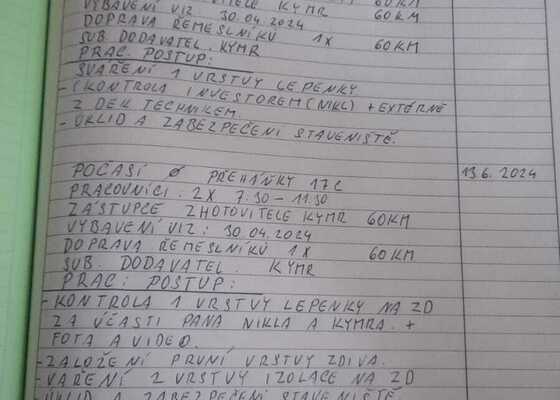 VYBAVENÍ VIZ. 30.04.2024
DOPRAVA ŘEMESLNÍKŮ 1X 60KM
SUB. DODAVATEL. KYMR
PRAC. POSTUP:
SVAŘENÍ 1 VRSTVY LEPENKY
- (KONTROLA INVESTOREM (NIKL) + EXTÉRNĚ
Z DEK TECHNIKEM.
- ÚKLID A ZABEZPEČENÍ STAVENIŠTĚ.
POČASÍ Ø PŘEHÁŇKY 17C 13.6.2024
PRACOVNÍCI: 2X 7:30-11:30
ZÁSTUPCE ZHOTOVITELE KYMR 60KM
VYBAVENÍ VIZ: 30.04.2024
DOPRAVA ŘEMESLNÍKŮ 1X 60KM
SUB. DODAVATEL. KYMR
PRAC. POSTUP:
- KONTROLA 1 VRSTVY LEPENKY NA ZD
ZA ÚČASTI PANA NIKLA A KYMRA. +
FOTA A VIDEO.
- ZALOŽENÍ PRVNÍ VRSTVY ZDIVA.
- VAŘENÍ 2 VRSTVY IZOLACE NA ZD
- ÚKLID A ZABEZPEČENÍ STAVENIŠTĚ